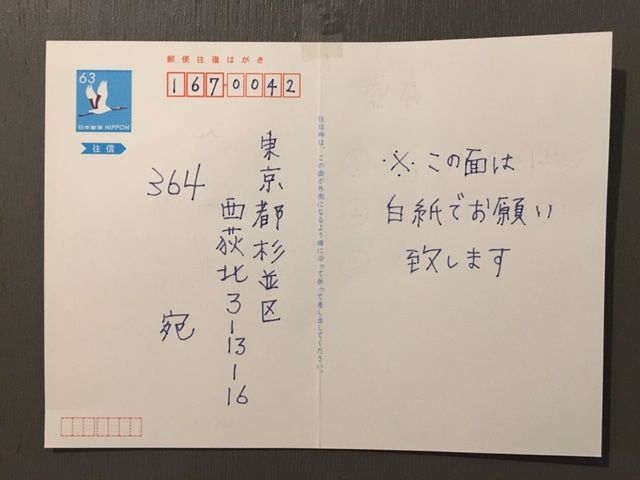 郵便往復はがき
63
日本郵便 NIPPON
往信
1670042
東京都杉並区
西荻北3-13-16
364 宛
往信時は、この面が外側になるよう線に沿って折って差し出してください。
※この面は
白紙でお願い
致します